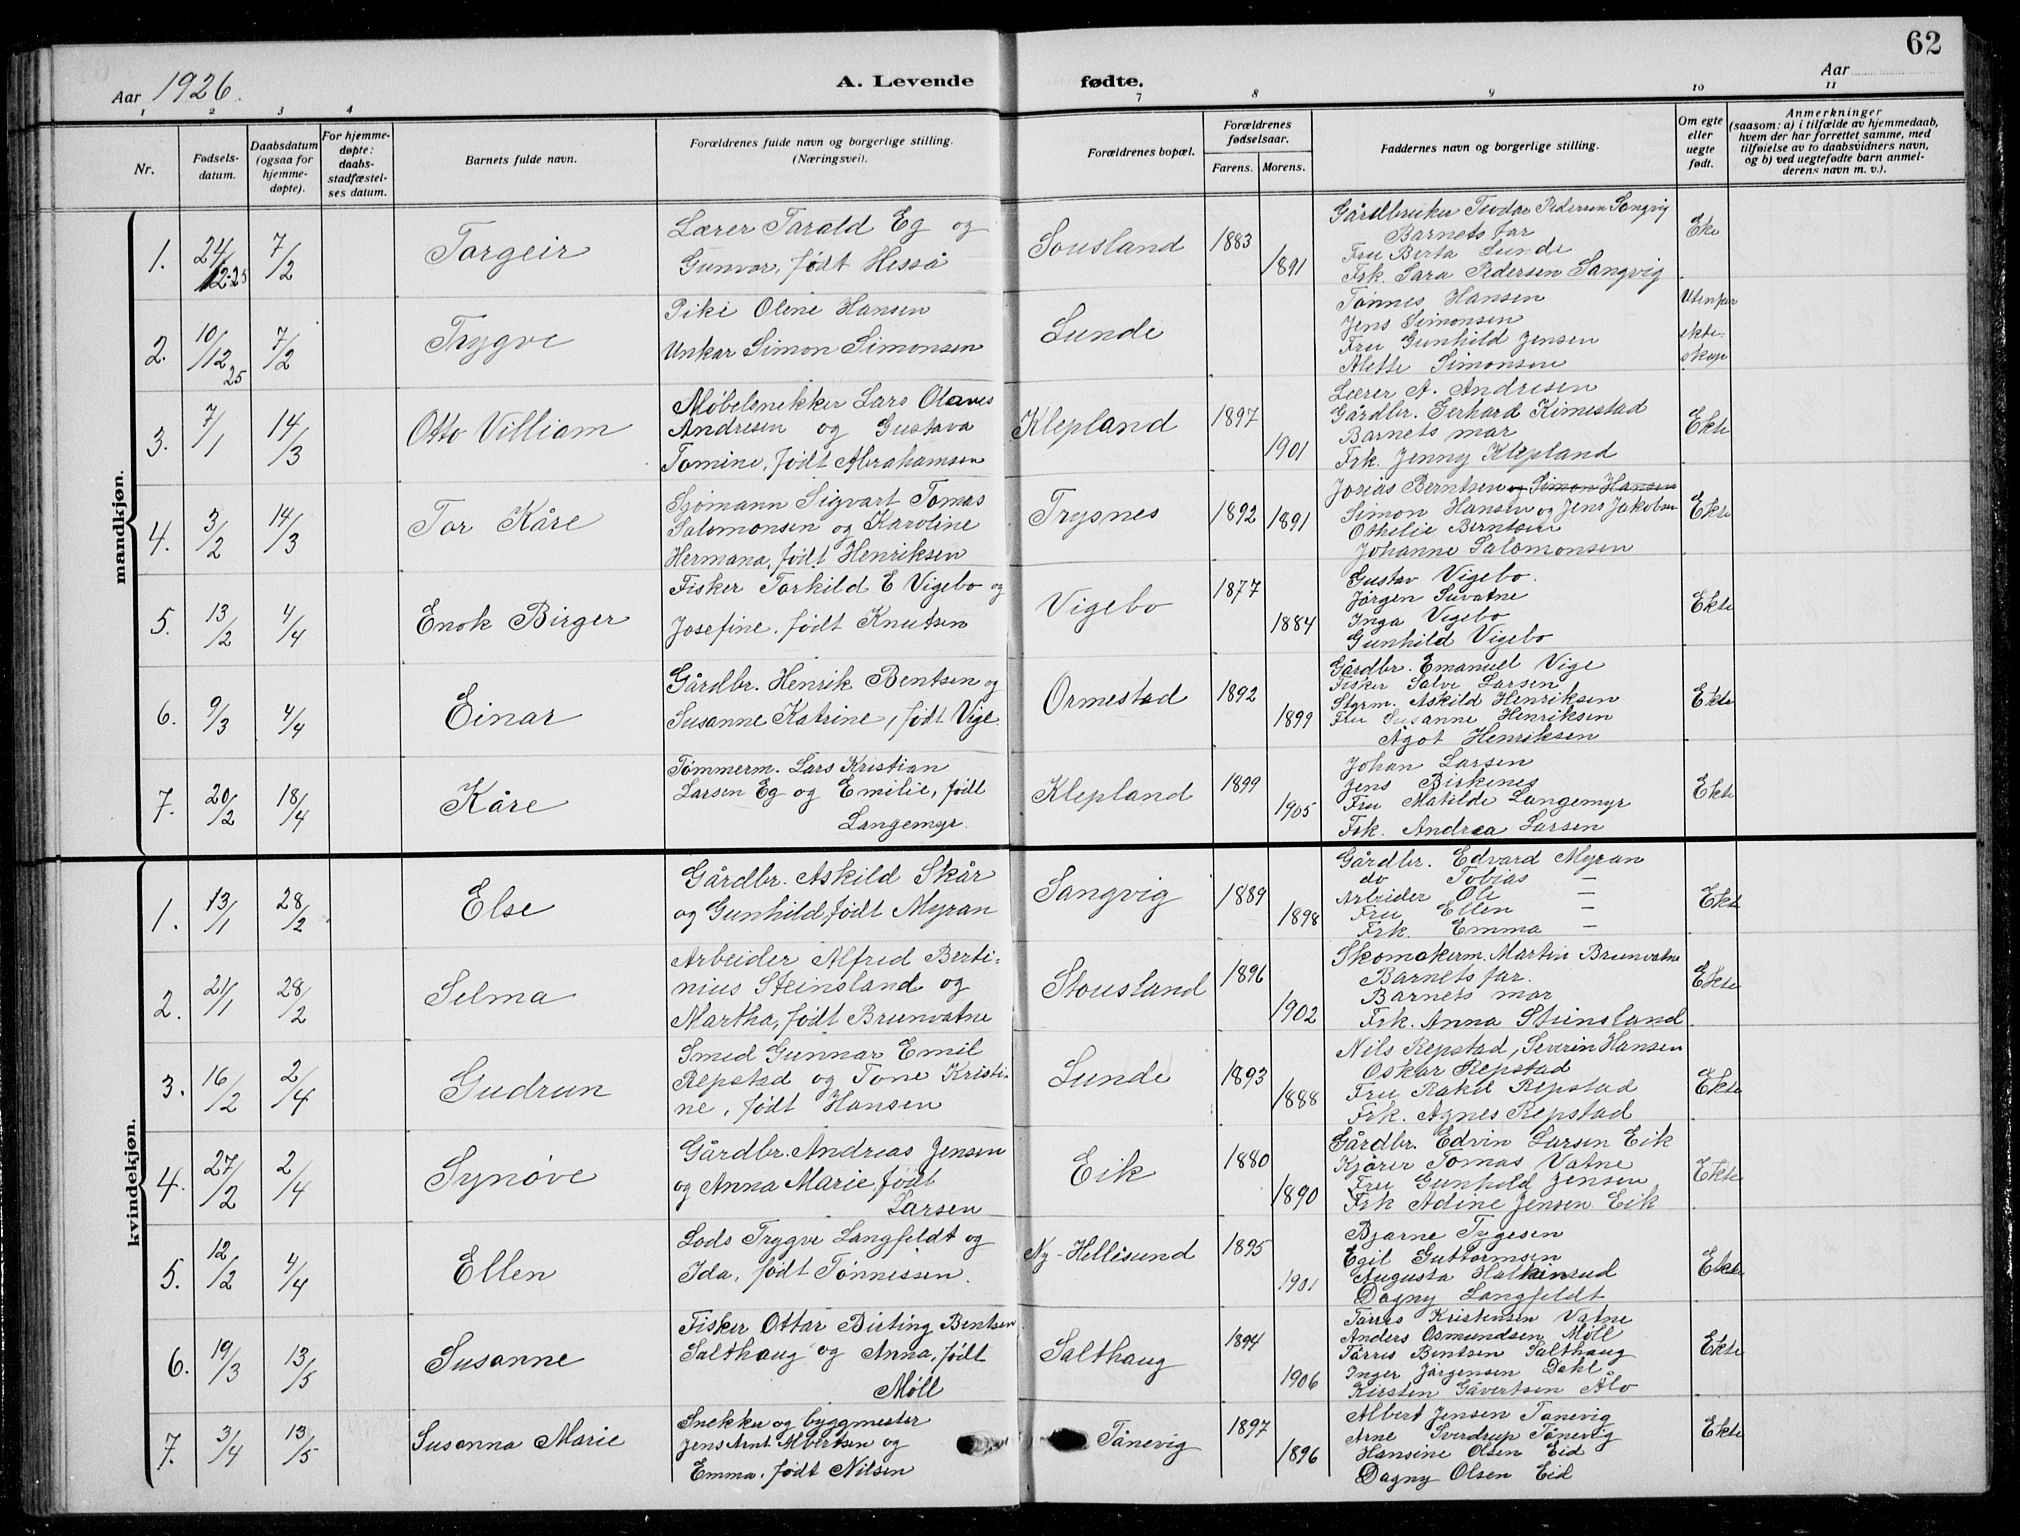 62
Aar 1926.
A. Levende fødte.
Aar
1 2 3 4 7 8 9 10 11
Nr.
Fødsels-
datum.
Daabsdatum
(ogsaa for
hjemme-
døpte).
For hjemme-
døpte:
daabs-
stadfæstel-
ses datum.
Barnets fulde navn.
Forældrenes fulde navn og borgerlige stilling.
(Næringsvei).
Forældrenes bopæl.
Forældrenes
fødselsaar.
Farens. Morens.
Faddernes navn og borgerlige stilling.
Om egte
eller
uegte
født.
Anmerkninger
(saasom: a) i tilfælde av hjemmedaab,
hvem der har forrettet samme, med
tilføielse av to daabsvidners navn,
og b) ved uegtefødte barn anmel-
derens navn m. v.).
mandkjøn.
1. 24/12-25 7/2
Torgeir
Lærer Tarald Eg og
Gunvor, født Hesså
Sousland
1883
1891
Gårdbruker Teodor Pedersen Songvig
Barnets far
Fru Berta Lunde
Frk. Sara Pedersen Sangvig
Ekte
2. 10/12 25 7/2
Trygve
Pike Olene Hansen
Unkar Simon Simonsen
Lunde
Tønnes Hansen
Jens Simonsen
Fru Gunhild Jensen
Alette Simonsen
Utenfor
ekte-
skap
3. 7/1 14/3
Otto Villiam
Møbelsnekker Lars Olaves
Andresen og Gustava
Tomine, født Abrahamsen
Klepland
1897
1901
Lærer A. Andresen
Gårdbr. Gerhard Kimestad
Barnets mor
Frk. Jenny Klepland
Ekte
4. 3/2 14/3
Tor Kåre
Sjømann Sigvart Tomas
Salomonsen og Karoline
Hermana, født Henriksen
Trysnes
1892 1891
Josias Berntsen og Simon Hansen
Simon Hansen og Jens Jakobsen
Othelie Berntsen
Johanne Salomonsen
Ekte
5. 13/2 4/4
Enok Birger
Fisker Torkild E Vigebo og
Josefine, født Knutsen
Vigebo
1877
1884
Gustav Vigebo.
Jørgen Suvatne
Inga Vigebo
Gunhild Vigebo
Ekte
6. 9/3 4/4
Einar
Gårdbr. Henrik Bentsen og
Susanne Katrine, født Vige.
Ormestad
1892
1899
Gårdbr. Emanuel Vige
Fisker Salve Larsen
Styrm. Askild Henriksen
Fru Susanne Henriksen
Ågot Henriksen
Ekte
7. 20/2 18/4
Kåre
Tømmerm. Lars Kristian
Larsen Eg og Emilie, født
Langemyr.
Klepland
1899
1905
Johan Larsen
Jens Birkenes
Fru Matilde Langemyr
Frk. Andrea Larsen
Ekte
kvindekjøn.
1. 13/1 28/2
Else
Gårdbr. Askild Skår
og Gunhild, født Myran
Sangvig
1889
1898
Gårdbr. Edvard Myran
do Tobias —
Arbeider Ole —
Fru Ellen —
Frk. Emma —
Ekte
2. 21/1 28/2
Selma
Arbeider Alfred Berti-
nius Steinsland og
Martha, født Brunvatne
Stousland
1896
1902
Skomakerm. Martin Brunvatne
Barnets far.
Barnets mor
Frk. Anna Steinsland
Ekte
3. 16/2 2/4
Gudrun
Smed Gunnar Emil
Repstad og Tone Kristi-
ne, født Hansen
Lunde
1893
1888
Nils Repstad, Severin Hansen
Oskar Repstad
Fru Rakel Repstad
Frk. Agnes Repstad
Ekte
4. 27/2 2/4
Synøve
Gårdbr. Andreas Jensen
og Anna Marie, født
Larsen
Eik
1880
1890
Gårdbr. Edvin Larsen Eik
Kjører Tomas Vatne
Fru Gunhild Jensen
Frk Adine Jensen Eik
Ekte
5. 12/2 4/4
Ellen
Lods Trygve Langfeldt og
Ida, født Tønnessen.
Ny-Hellesund
1895
1901
Bjarne Tygesen
Egil Guttormsen
Augusta Halkinrud
Dagny Langfeldt
Ekte
6. 19/3 13/5
Susanne
Fisker Ottar Birting Bentsen
Salthaug og Anna, født
Møll
Salthaug
1894
1906
Tørres Kristensen Vatne
Anders Osmundsen Møll
Tørres Bentsen Salthaug
Inger Jørgensen Dahl
Kirsten Gåvertsen Alo
Ekte
7. 3/4 13/5
Susanna Marie
Snekker og byggmester
Jens Arnt Albertsen og
Emma, født Nilsen
Tånevig
1897
1896
Albert Jensen Tånevig
Arne Sverdrup Tånevig
Hansine Olsen Eid
Dagny Olsen Eid
Ekte